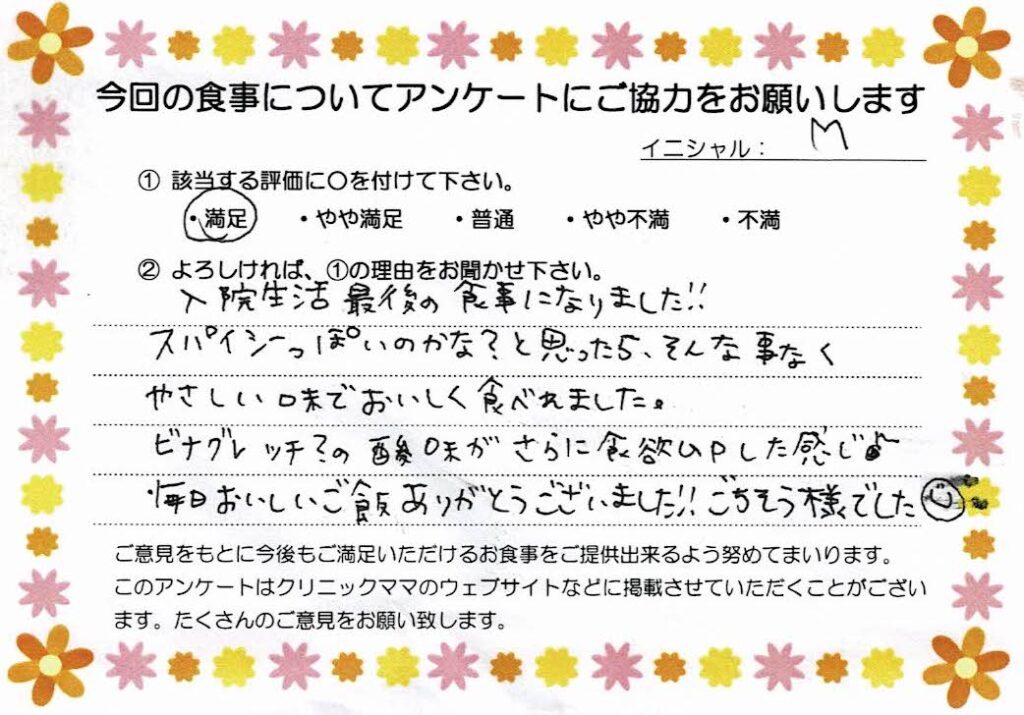 今回の食事についてアンケートにご協力をお願いします
イニシャル： M
① 該当する評価に○を付けて下さい。
・満足 ・やや満足 ・普通 ・やや不満 ・不満
② よろしければ、①の理由をお聞かせ下さい。
入院生活最後の食事になりました!!
スパイシーっぽいのかな?と思ったら、そんな事なく
やさしい味でおいしく食べれました。
ビナグレッチ?の酸味がさらに食欲UPした感じ♪
毎日おいしいご飯ありがとうございました!!ごちそう様でした☺
ご意見をもとに今後もご満足いただけるお食事をご提供出来るよう努めてまいります。
このアンケートはクリニックママのウェブサイトなどに掲載させていただくことがござい
ます。たくさんのご意見をお願い致します。